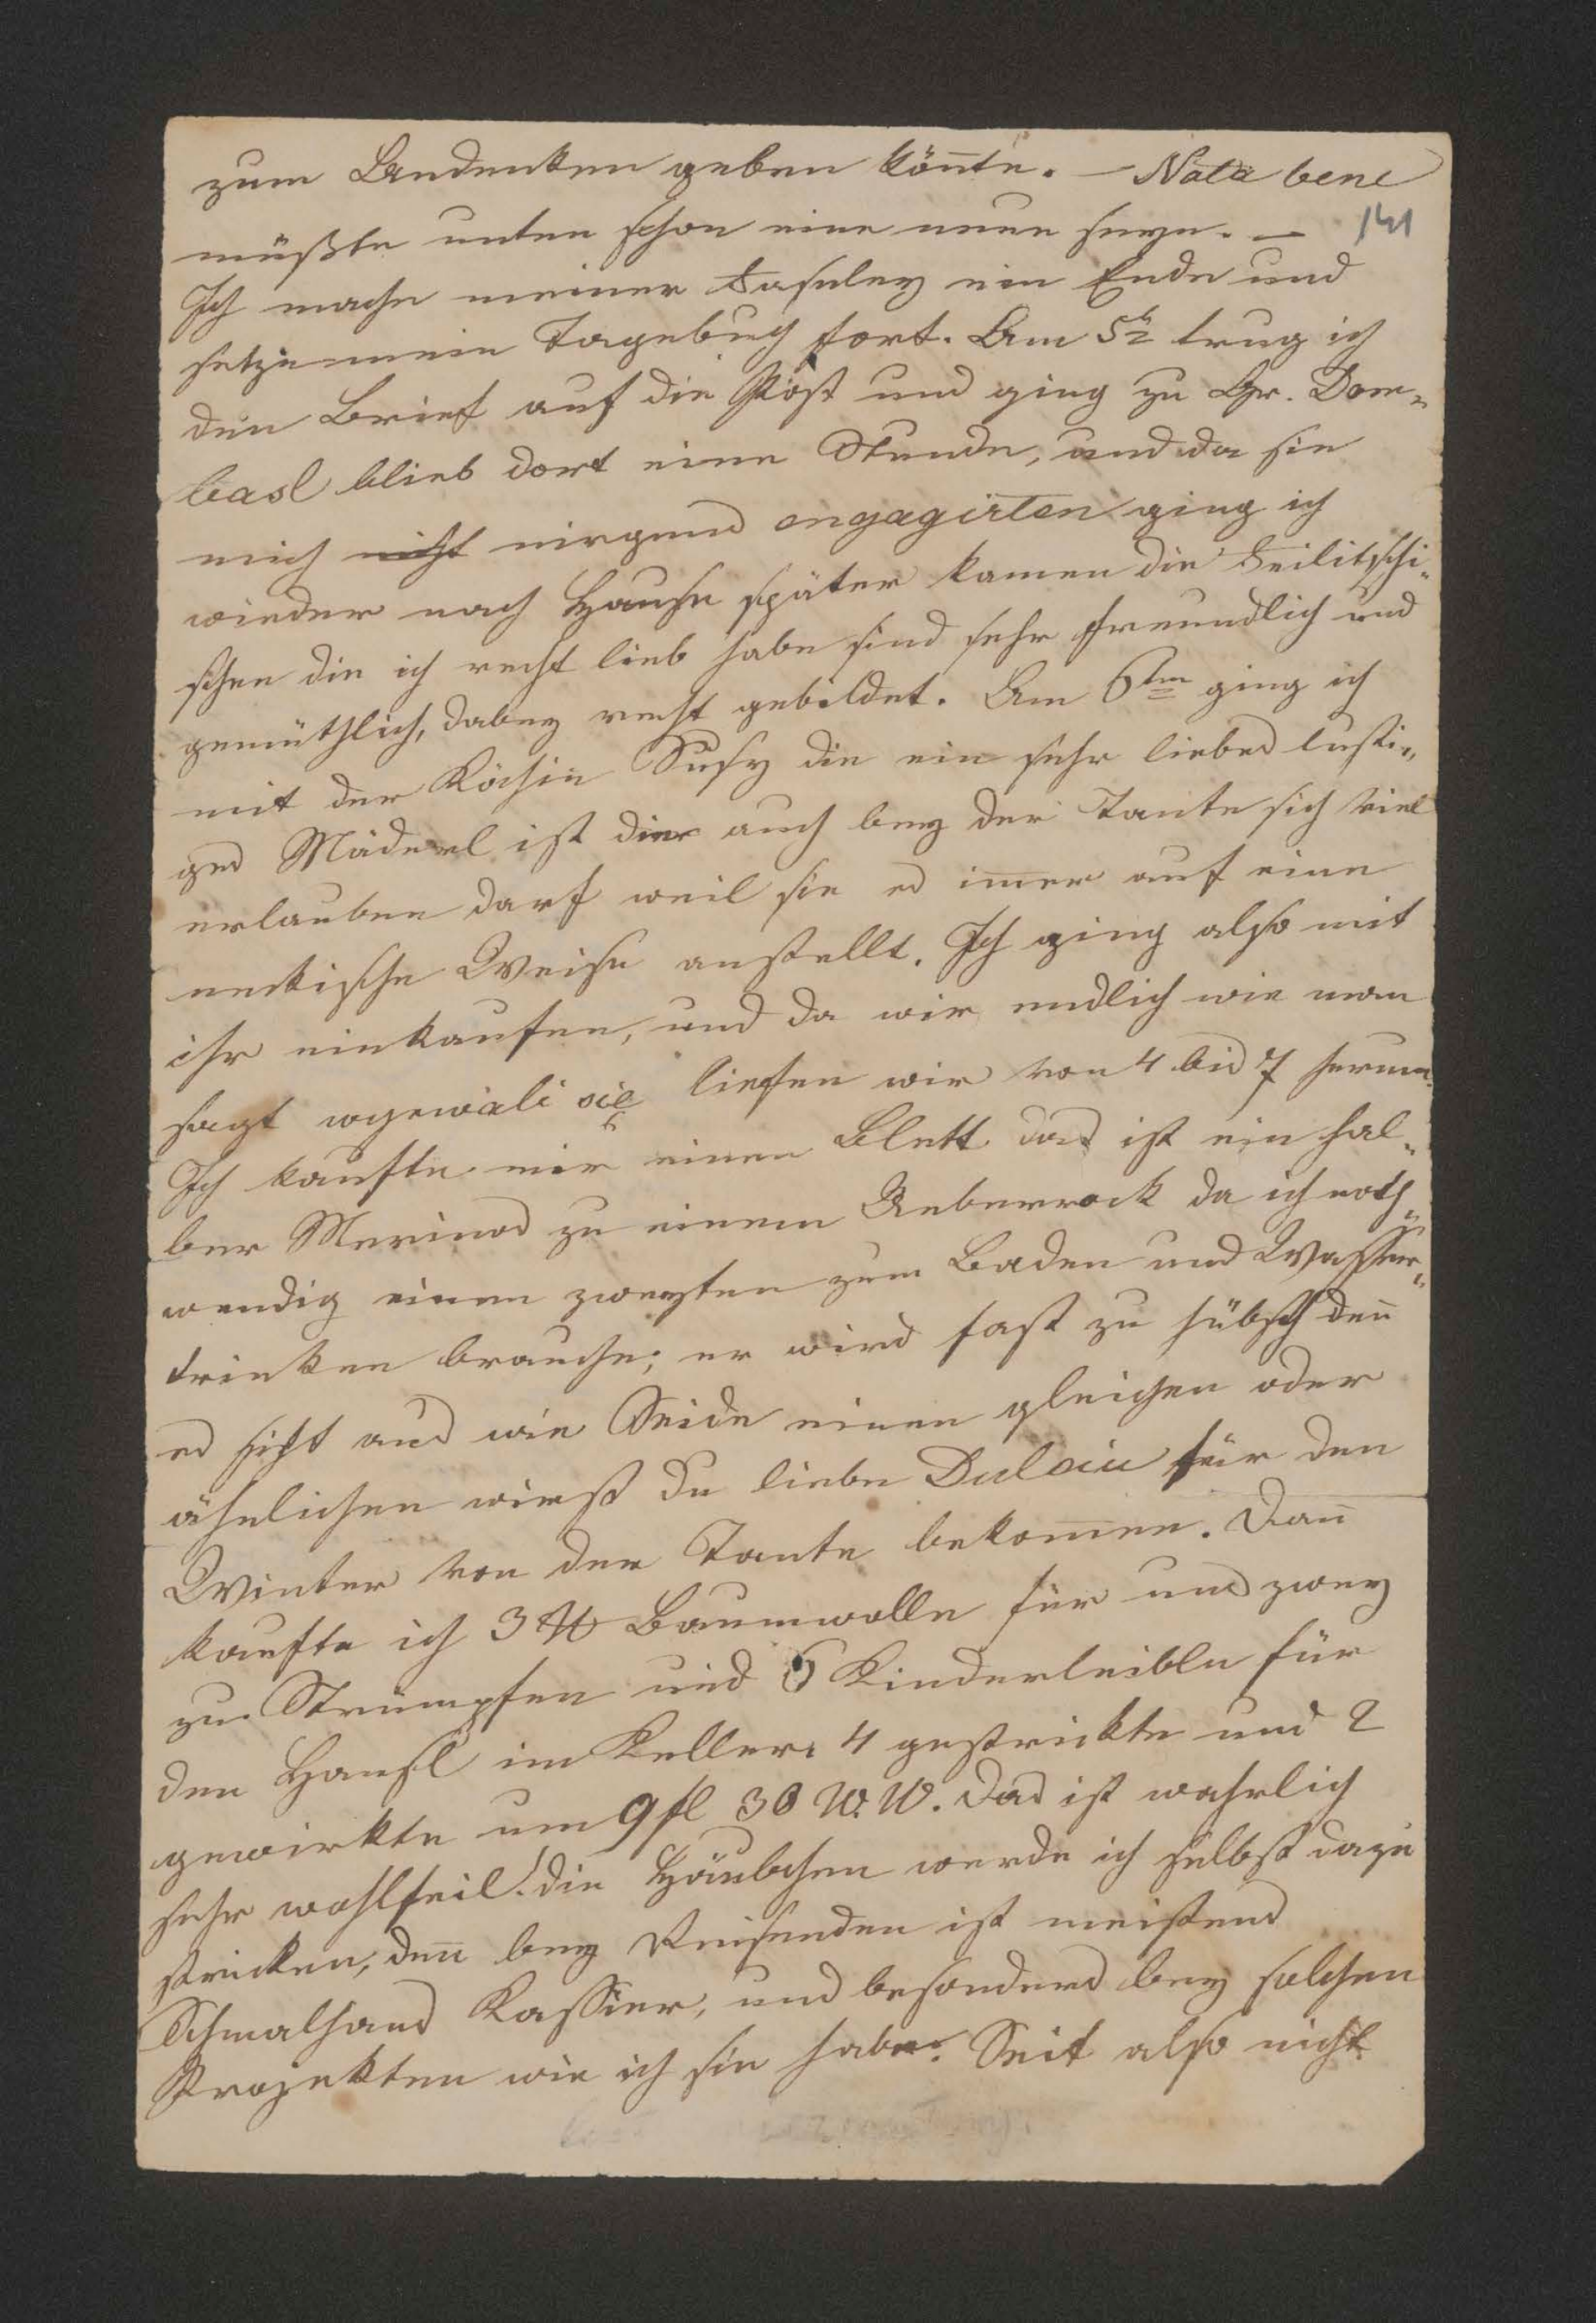 zum Andenken geben könnte. – Nota bene
müßte unten schon eine neue seyn. –
141
Ich mache meiner Faseley ein Ende und
setze mein Tagebuch fort. Am 5t trug ich
den Brief auf die Post und ging zu Gr. Dom„
basl blieb dort eine Stunde, und da sie
mich nicht nirgend engagirten ging ich
wieder nach Hause später kamen die Feilitschi„
schen die ich recht lieb habe sind sehr freundlich und
gemüthlich, dabey recht gebildet. Am 6ten ging ich
mit der Köchin Susy die ein sehr liebes lusti„
ges Mäderl ist die auch bey der Tante sich viel
erlauben darf weil sie es im̅er auf eine
neckische Weise anstellt. Ich ging also mit
ihr einkaufen, und da wir endlich wie man
sagt wyewali się liefen wir von 4 bis 7 herum.
Ich kaufte mir einen Blett das ist ein hal„
ber Merinos zu einem Ueberrock da ich noth„
wendig einen zweyten zum Baden und Wasser„
trinken brauche; er wird fast zu hübsch den̅
es sieht aus wie Seide einen gleichen oder
ähnlichen wirst du liebe Dulciu für den
Winter von der Tante bekom̅en. Dan̅
kaufte ich 3 ℔ Baumwolle für uns zwey
zu Strümpfen und 6 Kinderleible für
den Hansl im Keller. 4 gestrickte und 2
gewirkte um 9 fl 30 W. W. das ist wahrlich
sehr wohlfeil! die Häubchen werde ich selbst dazu
stricken, den̅ bey Reisenden ist meistens
Schmalhans Kassier, und besonders bey solchen
Projekten wie ich sie habe. Seit also nicht